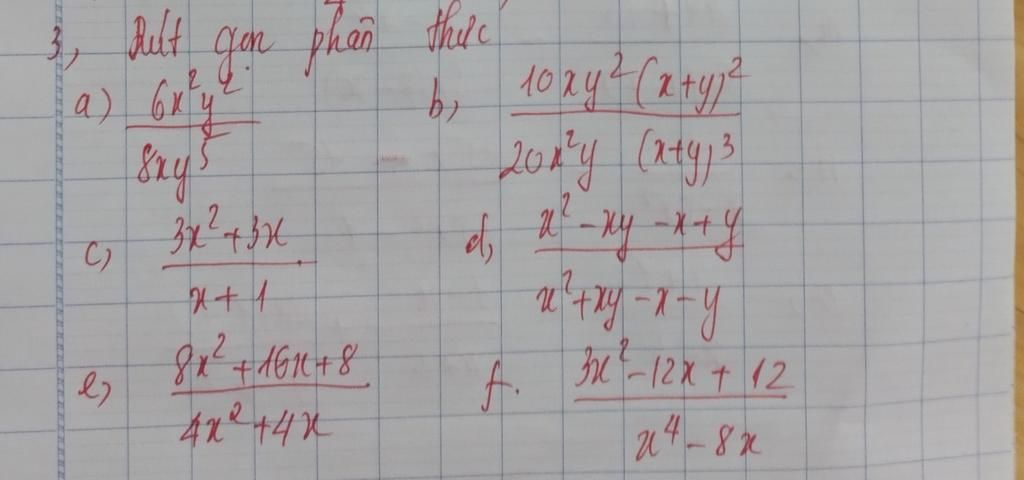 3, Rút gọn phân thức
a) 6x²y² / 8xy⁵ b, 10xy²(x+y)² / 20x²y (x+y)³
c, 3x²+3x / x+1 d, x²-xy-x+y / x²+xy-x-y
e, 8x²+16x+8 / 4x²+4x f. 3x²-12x+12 / x⁴-8x